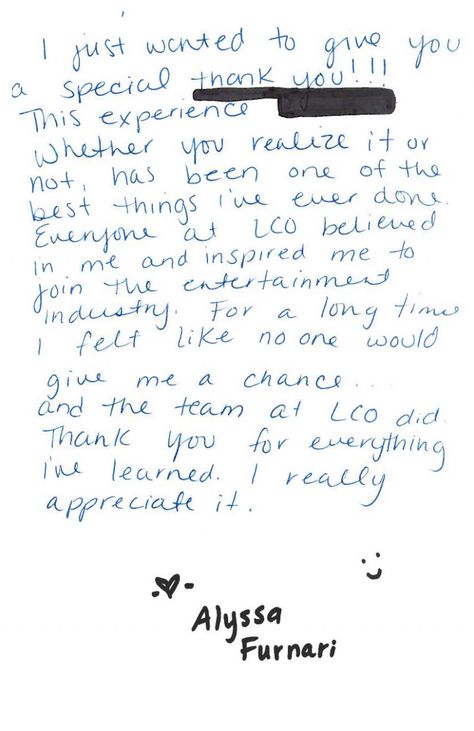 I just wanted to give you
a special thank you!!!
This experience
Whether you realize it or
not, has been one of the
best things i've ever done.
Everyone at LCO believed
in me and inspired me to
join the entertainment
industry. For a long time
I felt like no one would
give me a chance...
and the team at LCO did.
Thank you for everything
i've learned. I really
appreciate it.
:)
-♥-
Alyssa
Furnari